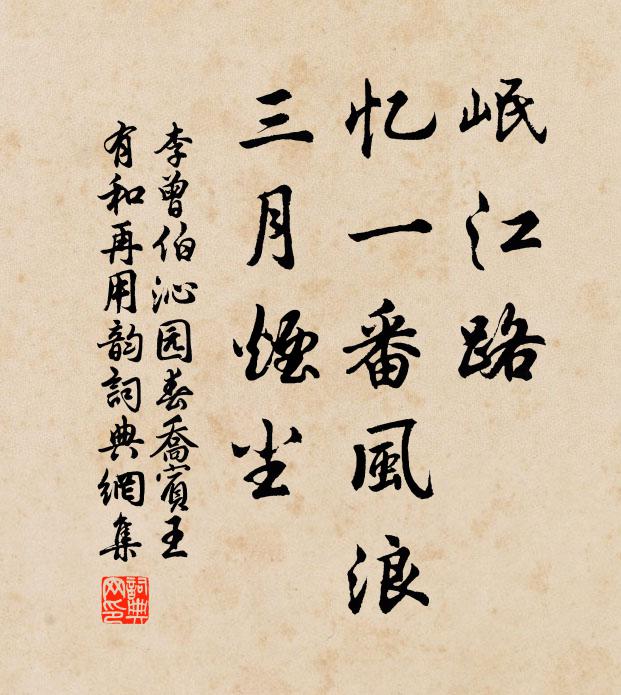 岷江路
忆一番風浪
三月煙尘
李曾伯沁园春喬賓王
有和再用韵詞典網集
詞典網印